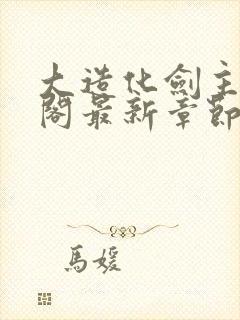 大造化劍主
閣最新章節
馬媛